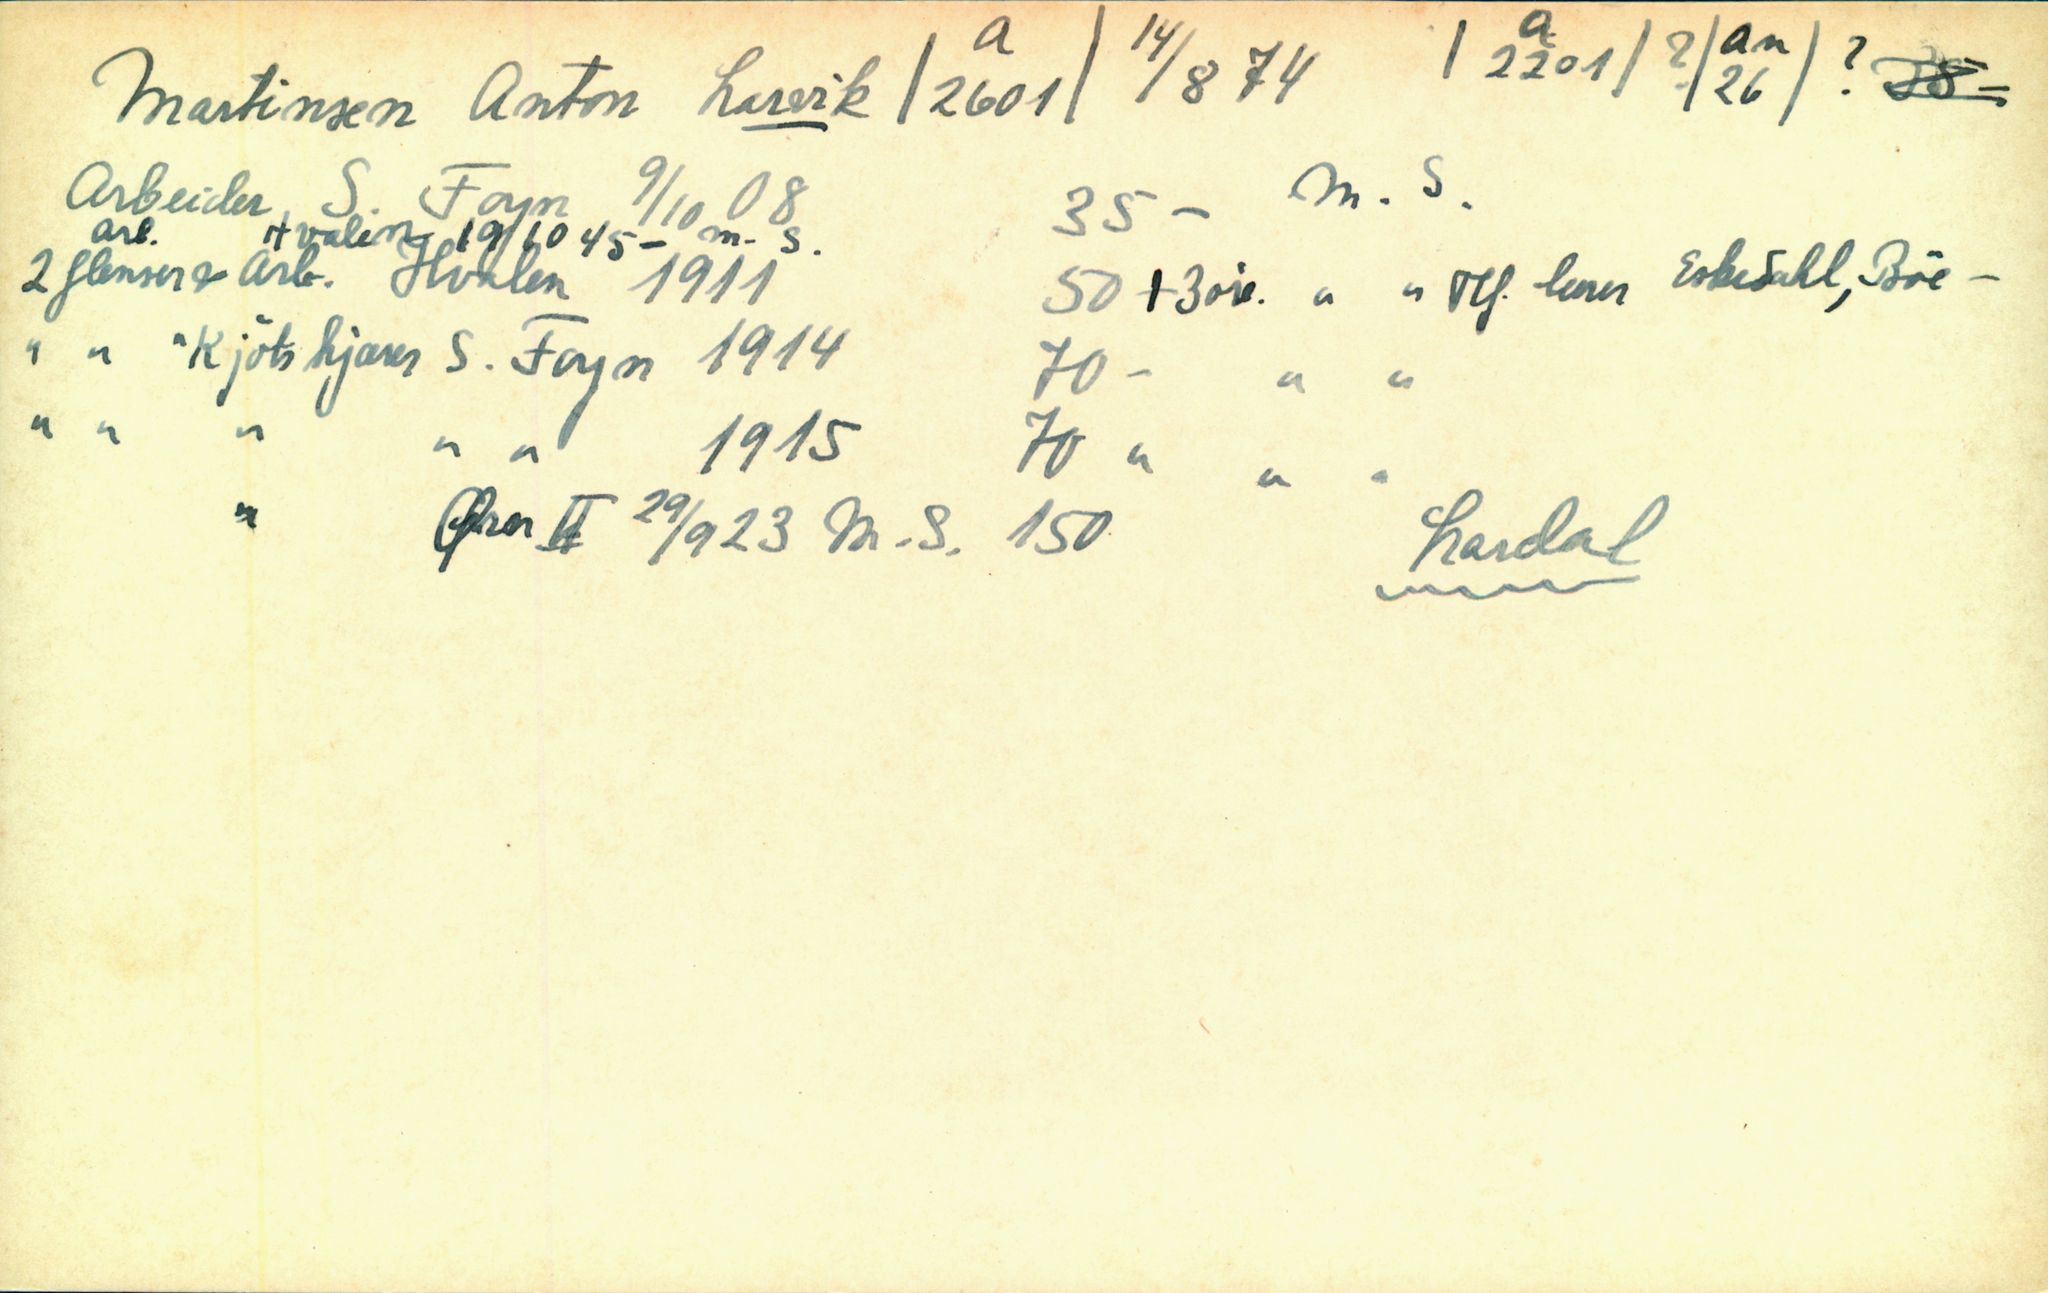 Martinsen Anton Larvik | a 2601 | 14/8 74 | a 2201 | ? | an 26 | ?
Arbeider S. Foyn 9/10 08 35 - M. S.
arb. Hvalen 19/10 45 - m. S.
2 flenser & Arb. Hvalen 1911 50 + 3 öre. " " Tlf. lærer Eskedahl, Böe -
" " " Kjötskjærer S. Foyn 1914 70 - " "
" " " " " 1915 70 " " "
" Ørn II 29/9 23 M. S. 150 Lardal